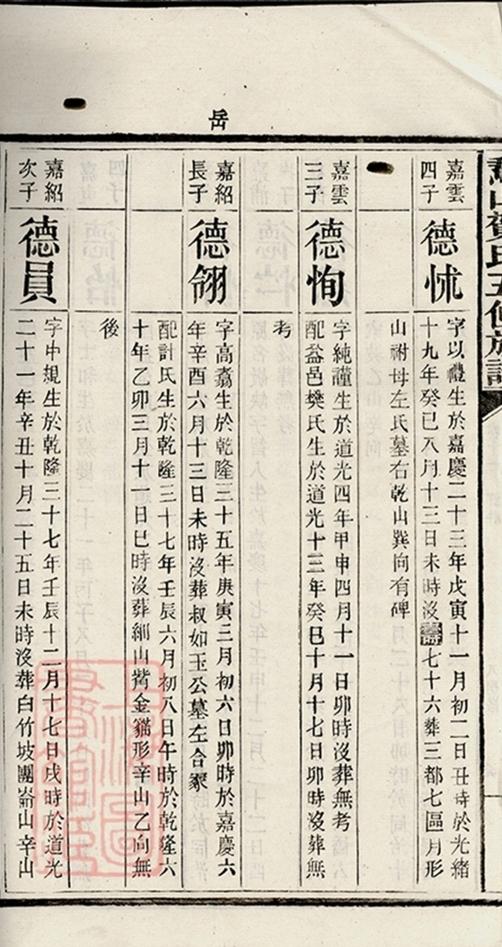 岳
賀氏五修族譜
嘉雲
四子
德怵
字以禮生於嘉慶二十三年戊寅十一月初二日丑時於光緒
十九年癸巳八月十三日未時沒壽七十六葬三都七區月形
山祔母左氏墓右乾山巽向有碑
嘉雲
三子
德恂
字純謹生於道光四年甲申四月十一日卯時沒葬無考
配益邑樊氏生於道光十三年癸巳十月十七日卯時沒葬無
考
嘉紹
長子
德翎
字高翥生於乾隆三十五年庚寅三月初六日卯時於嘉慶六
年辛酉六月十三日未時沒葬叔如玉公墓左合冢
配計氏生於乾隆三十七年壬辰六月初八日午時於乾隆六
十年乙卯三月十一日巳時沒葬細山觜金貓形辛山乙向無
後
嘉紹
次子
德員
字中規生於乾隆三十七年壬辰十二月十七日戌時於道光
二十一年辛丑十月二十五日未時沒葬白竹坡團崙山辛山